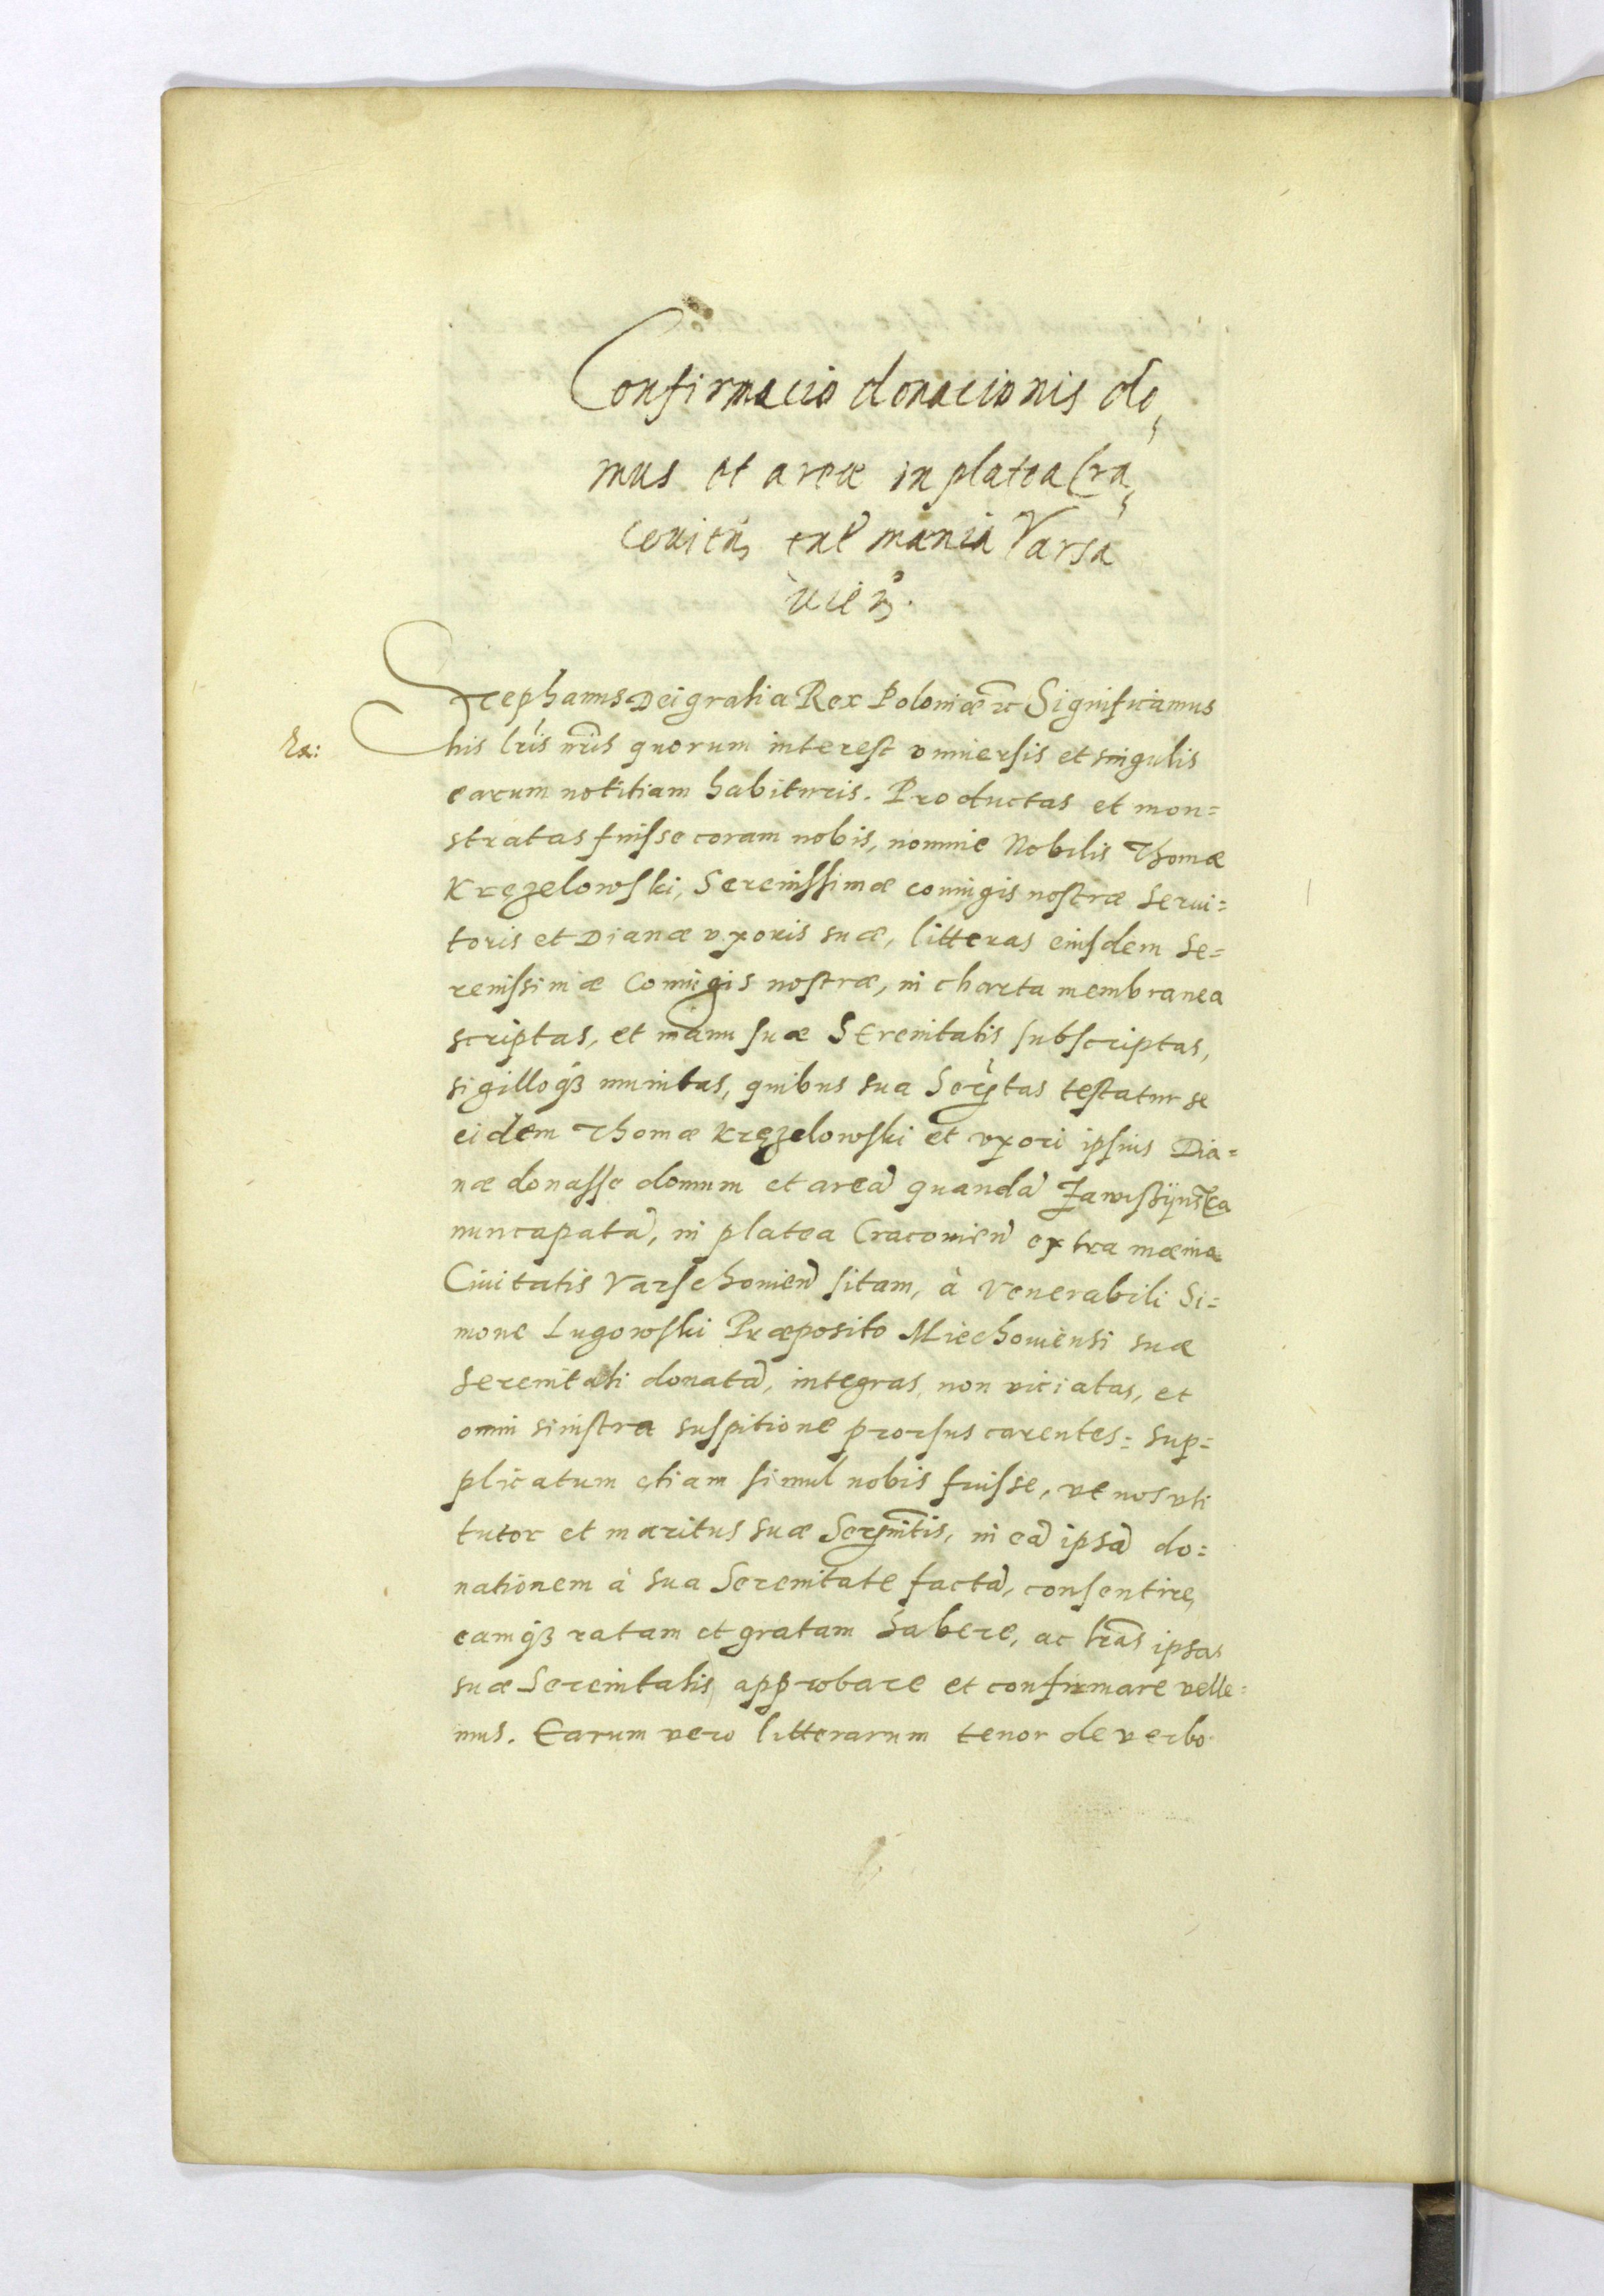 Confirmacio donacionis do¸
mus et areæ in platea Cra¸
couień extᵃ mænia Varsa
uień.
Stephanus Dei gratia Rex Poloniæ ꝛc Significamus
Ex:
his lr̃is nr̃is quorum interest vniuersis et singulis
earum notitiam habituris. Productas et mon=
stratas fuisse coram nobis, nomine Nobilis Thomæ
Kręzelowski, Serenissimæ coniugis nostræ Serui=
toris et Dianæ vxoris suæ, litteras eiusdem Se=
renissimæ Coniugis nostræ, in charta membranea
scriptas, et manu suæ Serenitatis subscriptas,
sigilloqꝫ munitas, quibus sua Serṽtas testatur se
eidem Thomæ Kręzelowski et vxori ipsius Dia=
næ donasse domum et areã quandã
nuncupatã, in platea Cracouień extra mænia
Ciuitatis Varschouień sitam, à Venerabili Si=
mone Lugowski Præposito Miechouiensi suæ
Serenitati donatã, integras, non viciatas, et
omni sinistra suspitione prorsus carentes: Sup=
plicatum etiam simul nobis fuisse, vt nos vti
tutor et maritus suæ Serenit̃is, in eã ipsã do=
nationem à sua Serenitate factã, consentire,
eamqꝫ ratam et gratam habere, ac lr̃as ipsas
suæ Serenitatis approbare et confirmare velle=
mus. Earum vero litterarum tenor de verbo